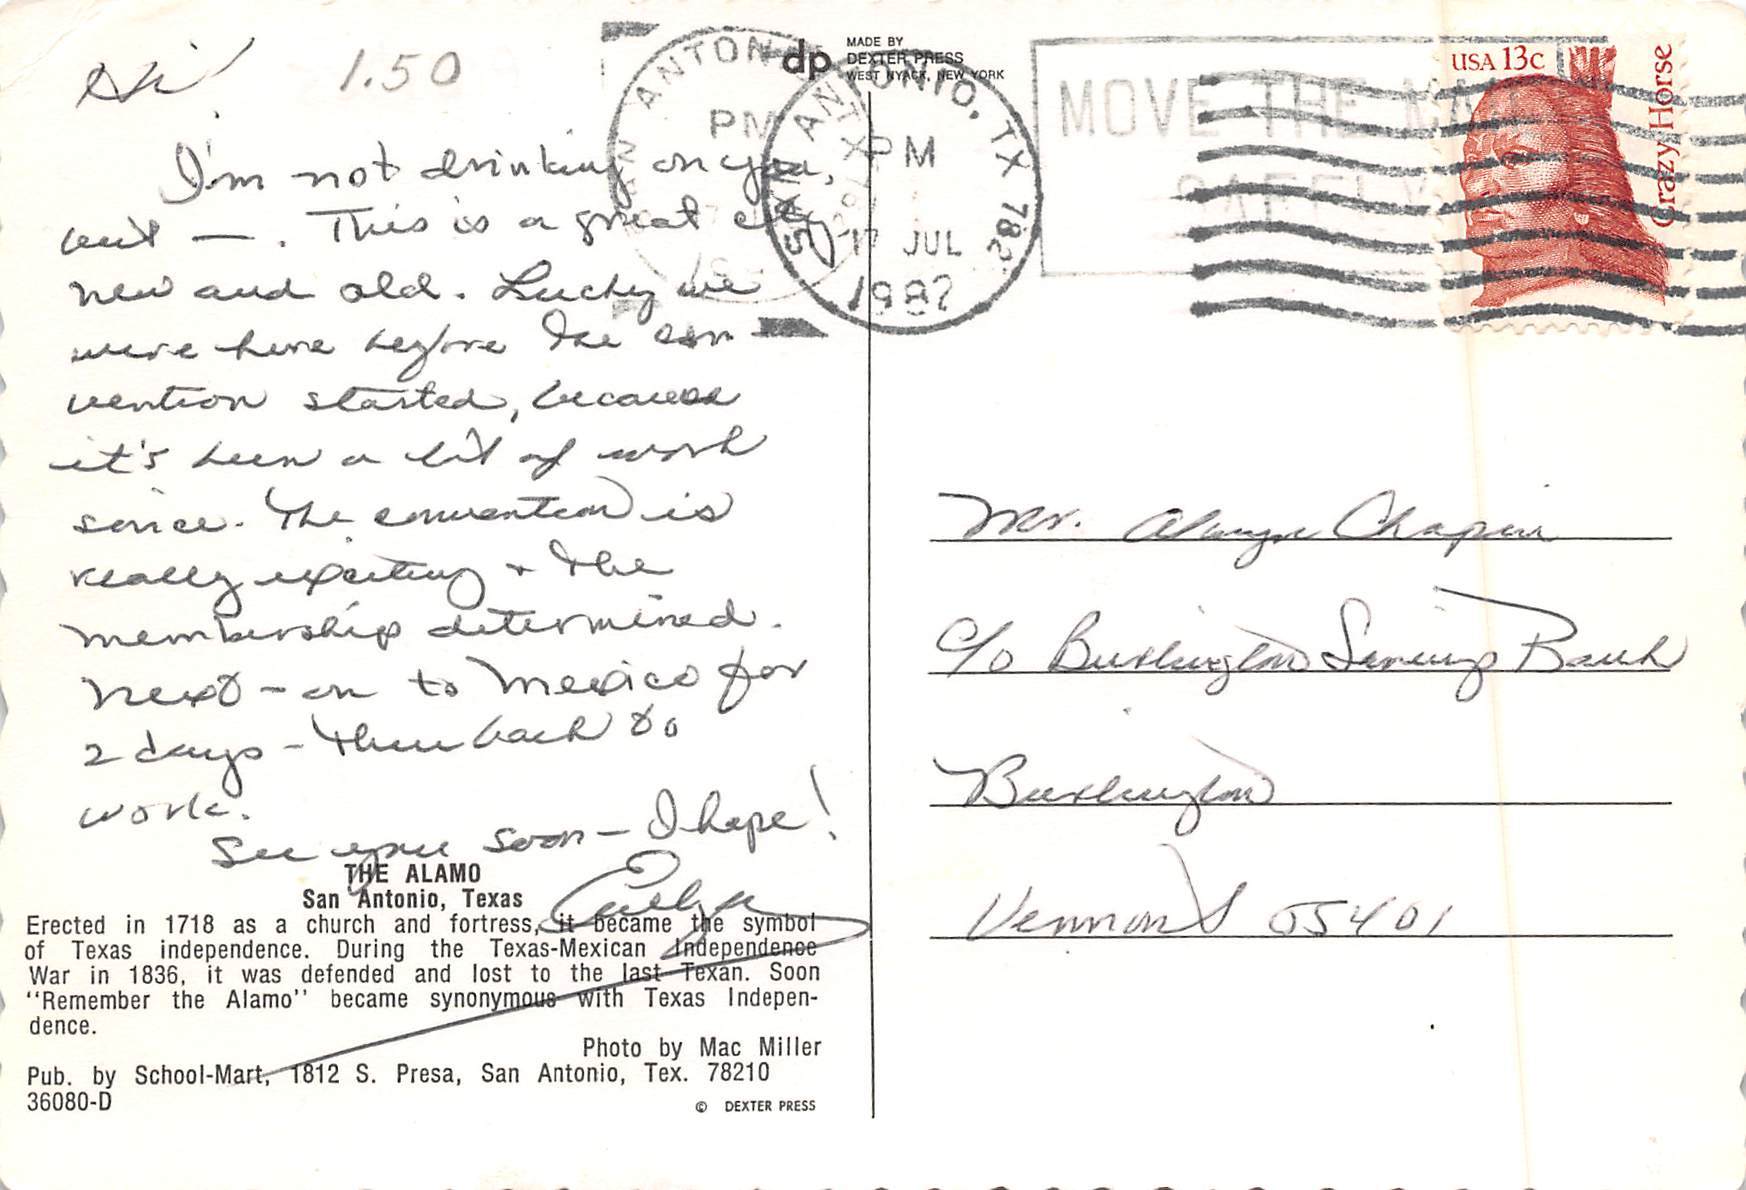 Hi! 1.50
I'm not drinking on you,
but — . This is a great city
new and old. Lucky we
were here before the con-
vention started, because
it's been a bit of work
since. The convention is
really exciting + the
membership determined.
Next - on to Mexico for
2 days - then back to
work.
See you soon - I hope!
THE ALAMO
San Antonio, Texas
Erected in 1718 as a church and fortress, it became the symbol
of Texas independence. During the Texas-Mexican Independence
War in 1836, it was defended and lost to the last Texan. Soon
"Remember the Alamo" became synonymous with Texas Indepen-
dence.
Photo by Mac Miller
Pub. by School-Mart, 1812 S. Presa, San Antonio, Tex. 78210
36080-D
© DEXTER PRESS
dp MADE BY
DEXTER PRESS
WEST NYACK, NEW YORK
SAN ANTONIO, TX 782
PM
17 JUL
1982
SAN ANTONIO TX
PM
MOVE THE MAIL
SAFELY
USA 13c
Crazy Horse
Mr. Alwyn Chapin
c/o Burlington Savings Bank
Burlington
Vermont 05401